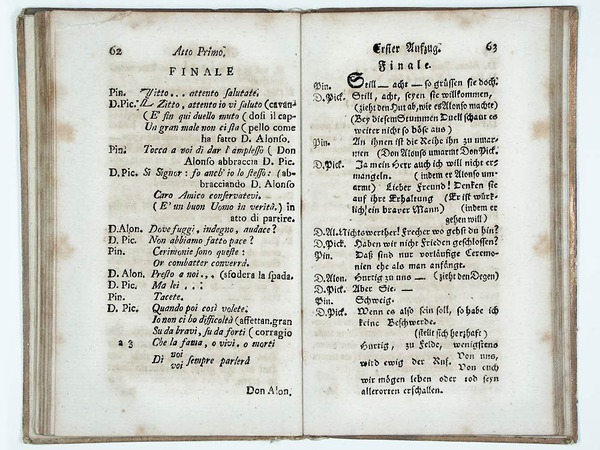 62 Atto Primo.
FINALE
Pin. Zitto... attento salutate.
D. Pic. Zitto, attento io vi saluto (cavan-
(E' fin qui duello muto (dosi il cap-
Un gran male non ci sta (pello come
ha fatto D. Alonso.
Pin. Tocca a voi di dar l'amplesso ( Don
Alonso abbraccia D. Pic.
D. Pic. Si Signor: fo anch' io lo stesso: (ab-
bracciando D. Alonso
Caro Amico conservatevi.
(E' un buon Uomo in verità.) in
atto di partire.
D. Alon. Dove fuggi, indegno, audace?
D. Pic. Non abbiamo fatto pace?
Pin. Cerimonie sono queste:
Or combatter converrà.
D. Alon. Presto a noi... (sfodera la spada.
D. Pic. Ma lei...
Pin. Tacete.
D. Pic. Quando poi così volete.
Io non ci ho difficoltà (affettan. gran
Su da bravi, su da forti (corragio
a 3 Che la fama, o vivi, o morti
voi
Di sempre parlerà
voi
Don Alon.
Erster Aufzug. 63
Finale.
Pin. Still — acht — so grüssen sie doch.
D. Pick. Still, acht, seyen sie willkommen,
(zieht den Hut ab, wie es Alonso machte)
(Bey diesem Stummen Duell schaut es
weiter nicht so böse aus)
Pin. An ihnen ist die Reihe ihn zu umar-
men (Don Alonso umarmt Don Pick.
D. Pick. Ja mein Herr auch ich will nicht er-
mangeln. (indem er Alonso um-
armt) Lieber Freund! Denken sie
auf ihre Erhaltung (Er ist würk-
lich ein braver Mann) (indem er
gehen will)
D. Al. Nichtswerther! Frecher wo gehst du hin?
D. Pick. Haben wir nicht Frieden geschlossen?
Pin. Daß sind nur vorläufige Ceremo-
nien ehe als man anfängt.
D. Alon. Hurtig zu uns — (zieht den Degen)
D. Pick. Aber Sie. —
Pin. Schweig.
D. Pick. Wenn es also sein soll, so habe ich
keine Beschwerde.
(stellt sich herzhaft)
Hurtig, zu Felde, wenigstens
wird ewig der Ruf. Von uns,
Von euch
wir mögen leben oder tod seyn
allerorten erschallen.